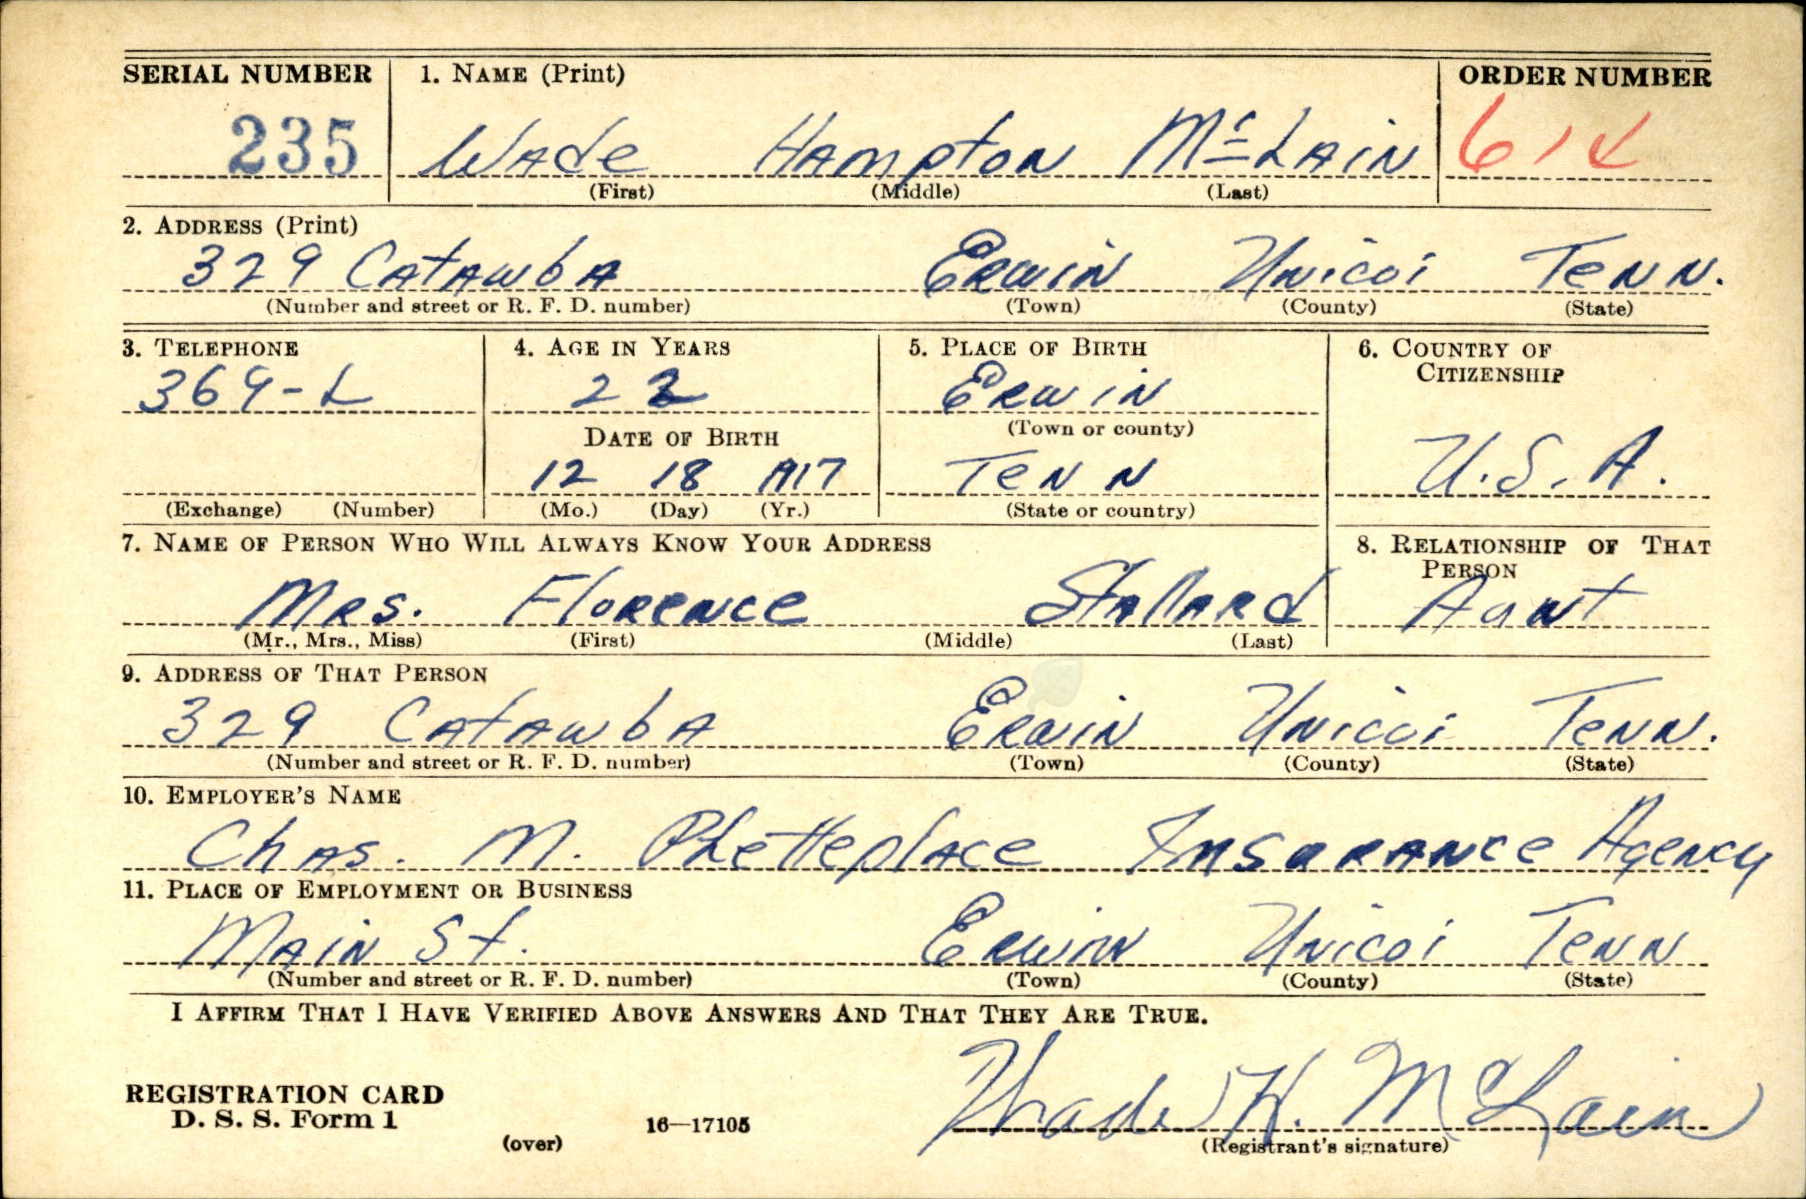 SERIAL NUMBER 1. NAME (Print) ORDER NUMBER
235 Wade Hampton McLain
(First) (Middle) (Last)
2. ADDRESS (Print)
329 Catawba Erwin Unicoi Tenn.
(Number and street or R. F. D. number) (Town) (County) (State)
3. TELEPHONE 4. AGE IN YEARS 5. PLACE OF BIRTH 6. COUNTRY OF CITIZENSHIP
369-L 22 Erwin
(Town or county)
DATE OF BIRTH
12 18 1917 Tenn U.S.A.
(Exchange) (Number) (Mo.) (Day) (Yr.) (State or country)
7. NAME OF PERSON WHO WILL ALWAYS KNOW YOUR ADDRESS 8. RELATIONSHIP OF THAT PERSON
Mrs. Florence Stallard Aunt
(Mr., Mrs., Miss) (First) (Middle) (Last)
9. ADDRESS OF THAT PERSON
329 Catawba Erwin Unicoi Tenn.
(Number and street or R. F. D. number) (Town) (County) (State)
10. EMPLOYER'S NAME
Chas. M. Phetteplace Insurance Agency
11. PLACE OF EMPLOYMENT OR BUSINESS
Main St. Erwin Unicoi Tenn
(Number and street or R. F. D. number) (Town) (County) (State)
I AFFIRM THAT I HAVE VERIFIED ABOVE ANSWERS AND THAT THEY ARE TRUE.
Wade H. McLain
REGISTRATION CARD
D. S. S. Form 1
(over) 16—17105 (Registrant's signature)